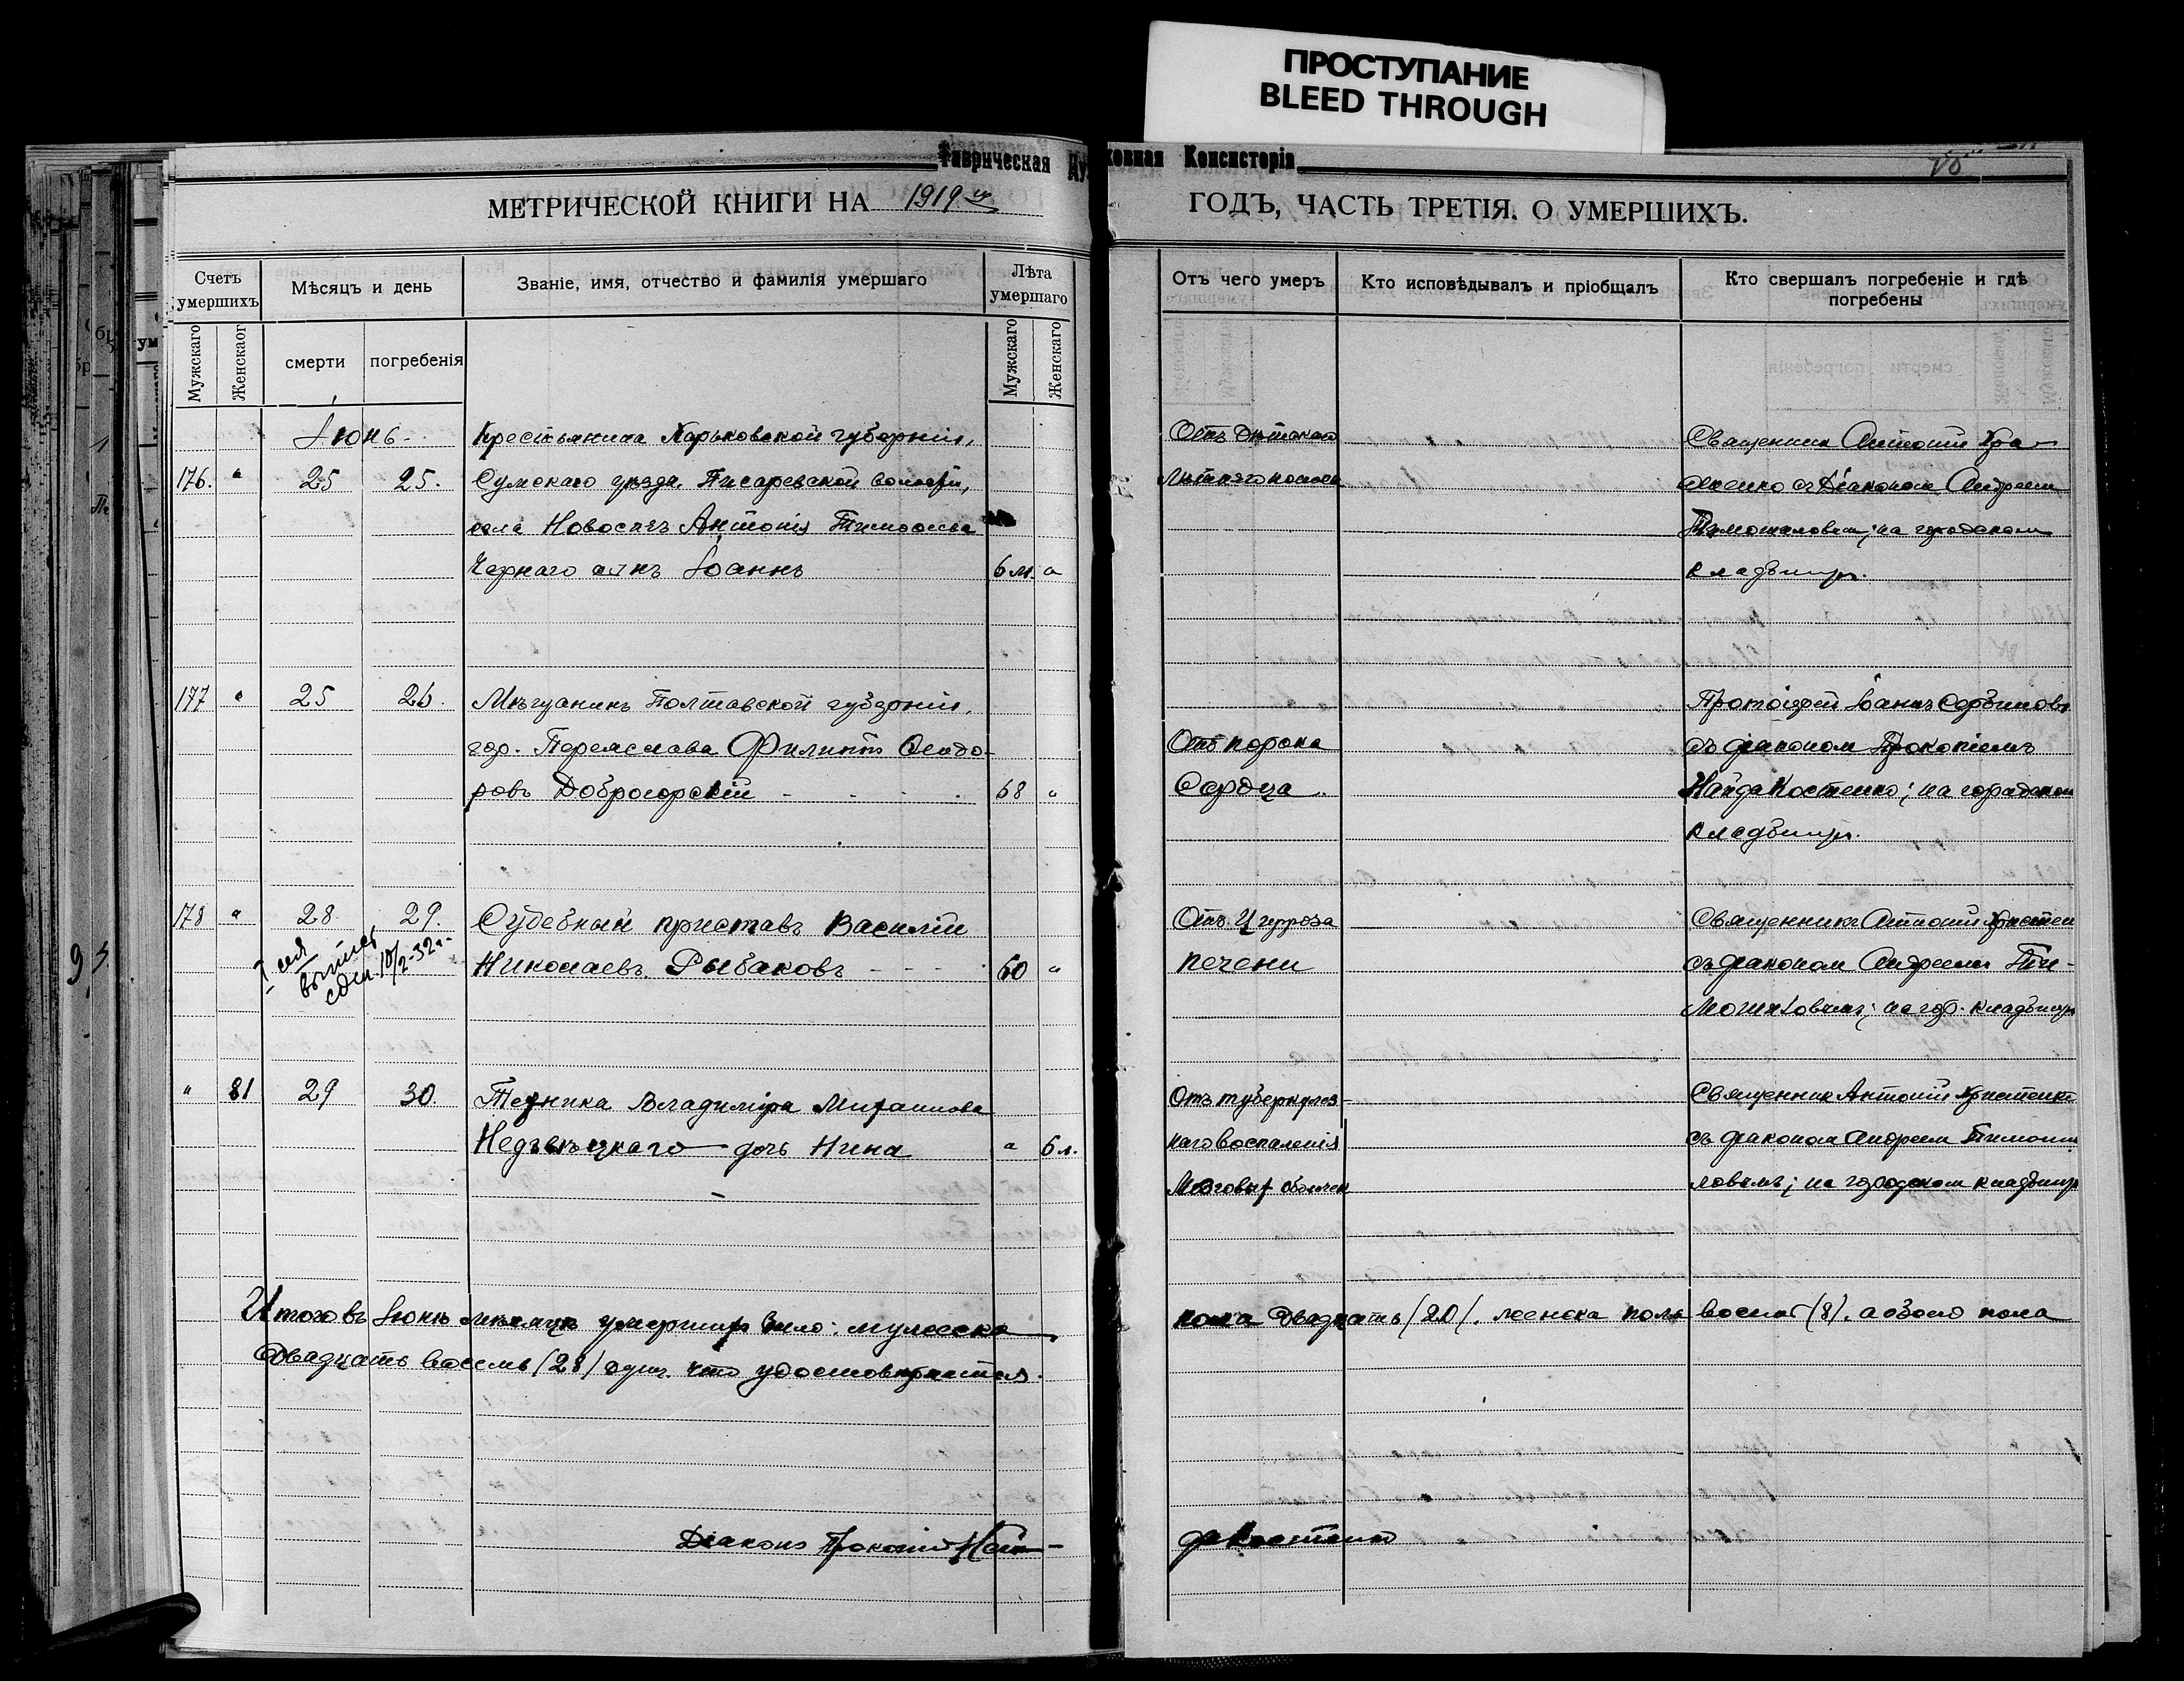 ПРОСТУПАНИЕ
BLEED THROUGH
Таврическая Духовная Консисторія
МЕТРИЧЕСКОЙ КНИГИ НА 1919 ГОДЪ, ЧАСТЬ ТРЕТІЯ. О УМЕРШИХЪ.
Счетъ умершихъ
Мужскаго
Женскаго
Мѣсяцъ и день
смерти
погребенія
Званіе, имя, отчество и фамилія умершаго
Лѣта умершаго
Мужскаго
Женскаго
Отъ чего умеръ
Кто исповѣдывалъ и пріобщалъ
Кто свершалъ погребеніе и гдѣ
погребены
Іюнь
176. " 25 25.
Крестьянина Харьковской губерніи,
Сумскаго уѣзда, Писаревской волости,
села Антонія Тимофѣева
Чернаго сынъ Іоаннъ 6 м. "
Отъ дѣтскаго
Лѣтняго поноса
Священникъ Антоній Хри-
стенко съ Діакономъ Андреем
на городском
кладбищѣ.
177 " 25 26.
Мѣщанинъ Полтавской губерніи,
гор. Переяслава Филиппъ Ѳеодо-
ровъ Доброгорскій 68 "
Отъ порока
Сердца.
Протоіерей Іоаннъ Сербиновъ
съ діаконом Прокопіемъ
Найда Костенко; на городском
кладбищѣ.
178 " 28 29.
Судебный приставъ Василій
Николаевъ Рыбаковъ 60 "
I экз
выпись
сдел. 10/2-32 г.
Отъ Цирроза
печени
Священникъ Антоній Христен
съ діаконом Андреем Ти-
мошиловым; на гор. кладбищѣ
" 81 29 30.
Техника Владиміра Михаилова
Недзвѣцкаго дочь Нина " 6 л.
Отъ туберкулез-
наго воспаленія
Мозговых оболочек
Священник Антоній Христенко
съ діаконом Андреем Тимоши
ловымъ; на городском кладбищѣ
Итого въ Іюнѣ мѣсяцѣ умерших было: мужеска пола двадцать (20). женска пола восемь (8). а обоего пола
двадцать восемь (28) душ. что удостовѣряется.
Діаконъ Прокопій Най-
да Костенко